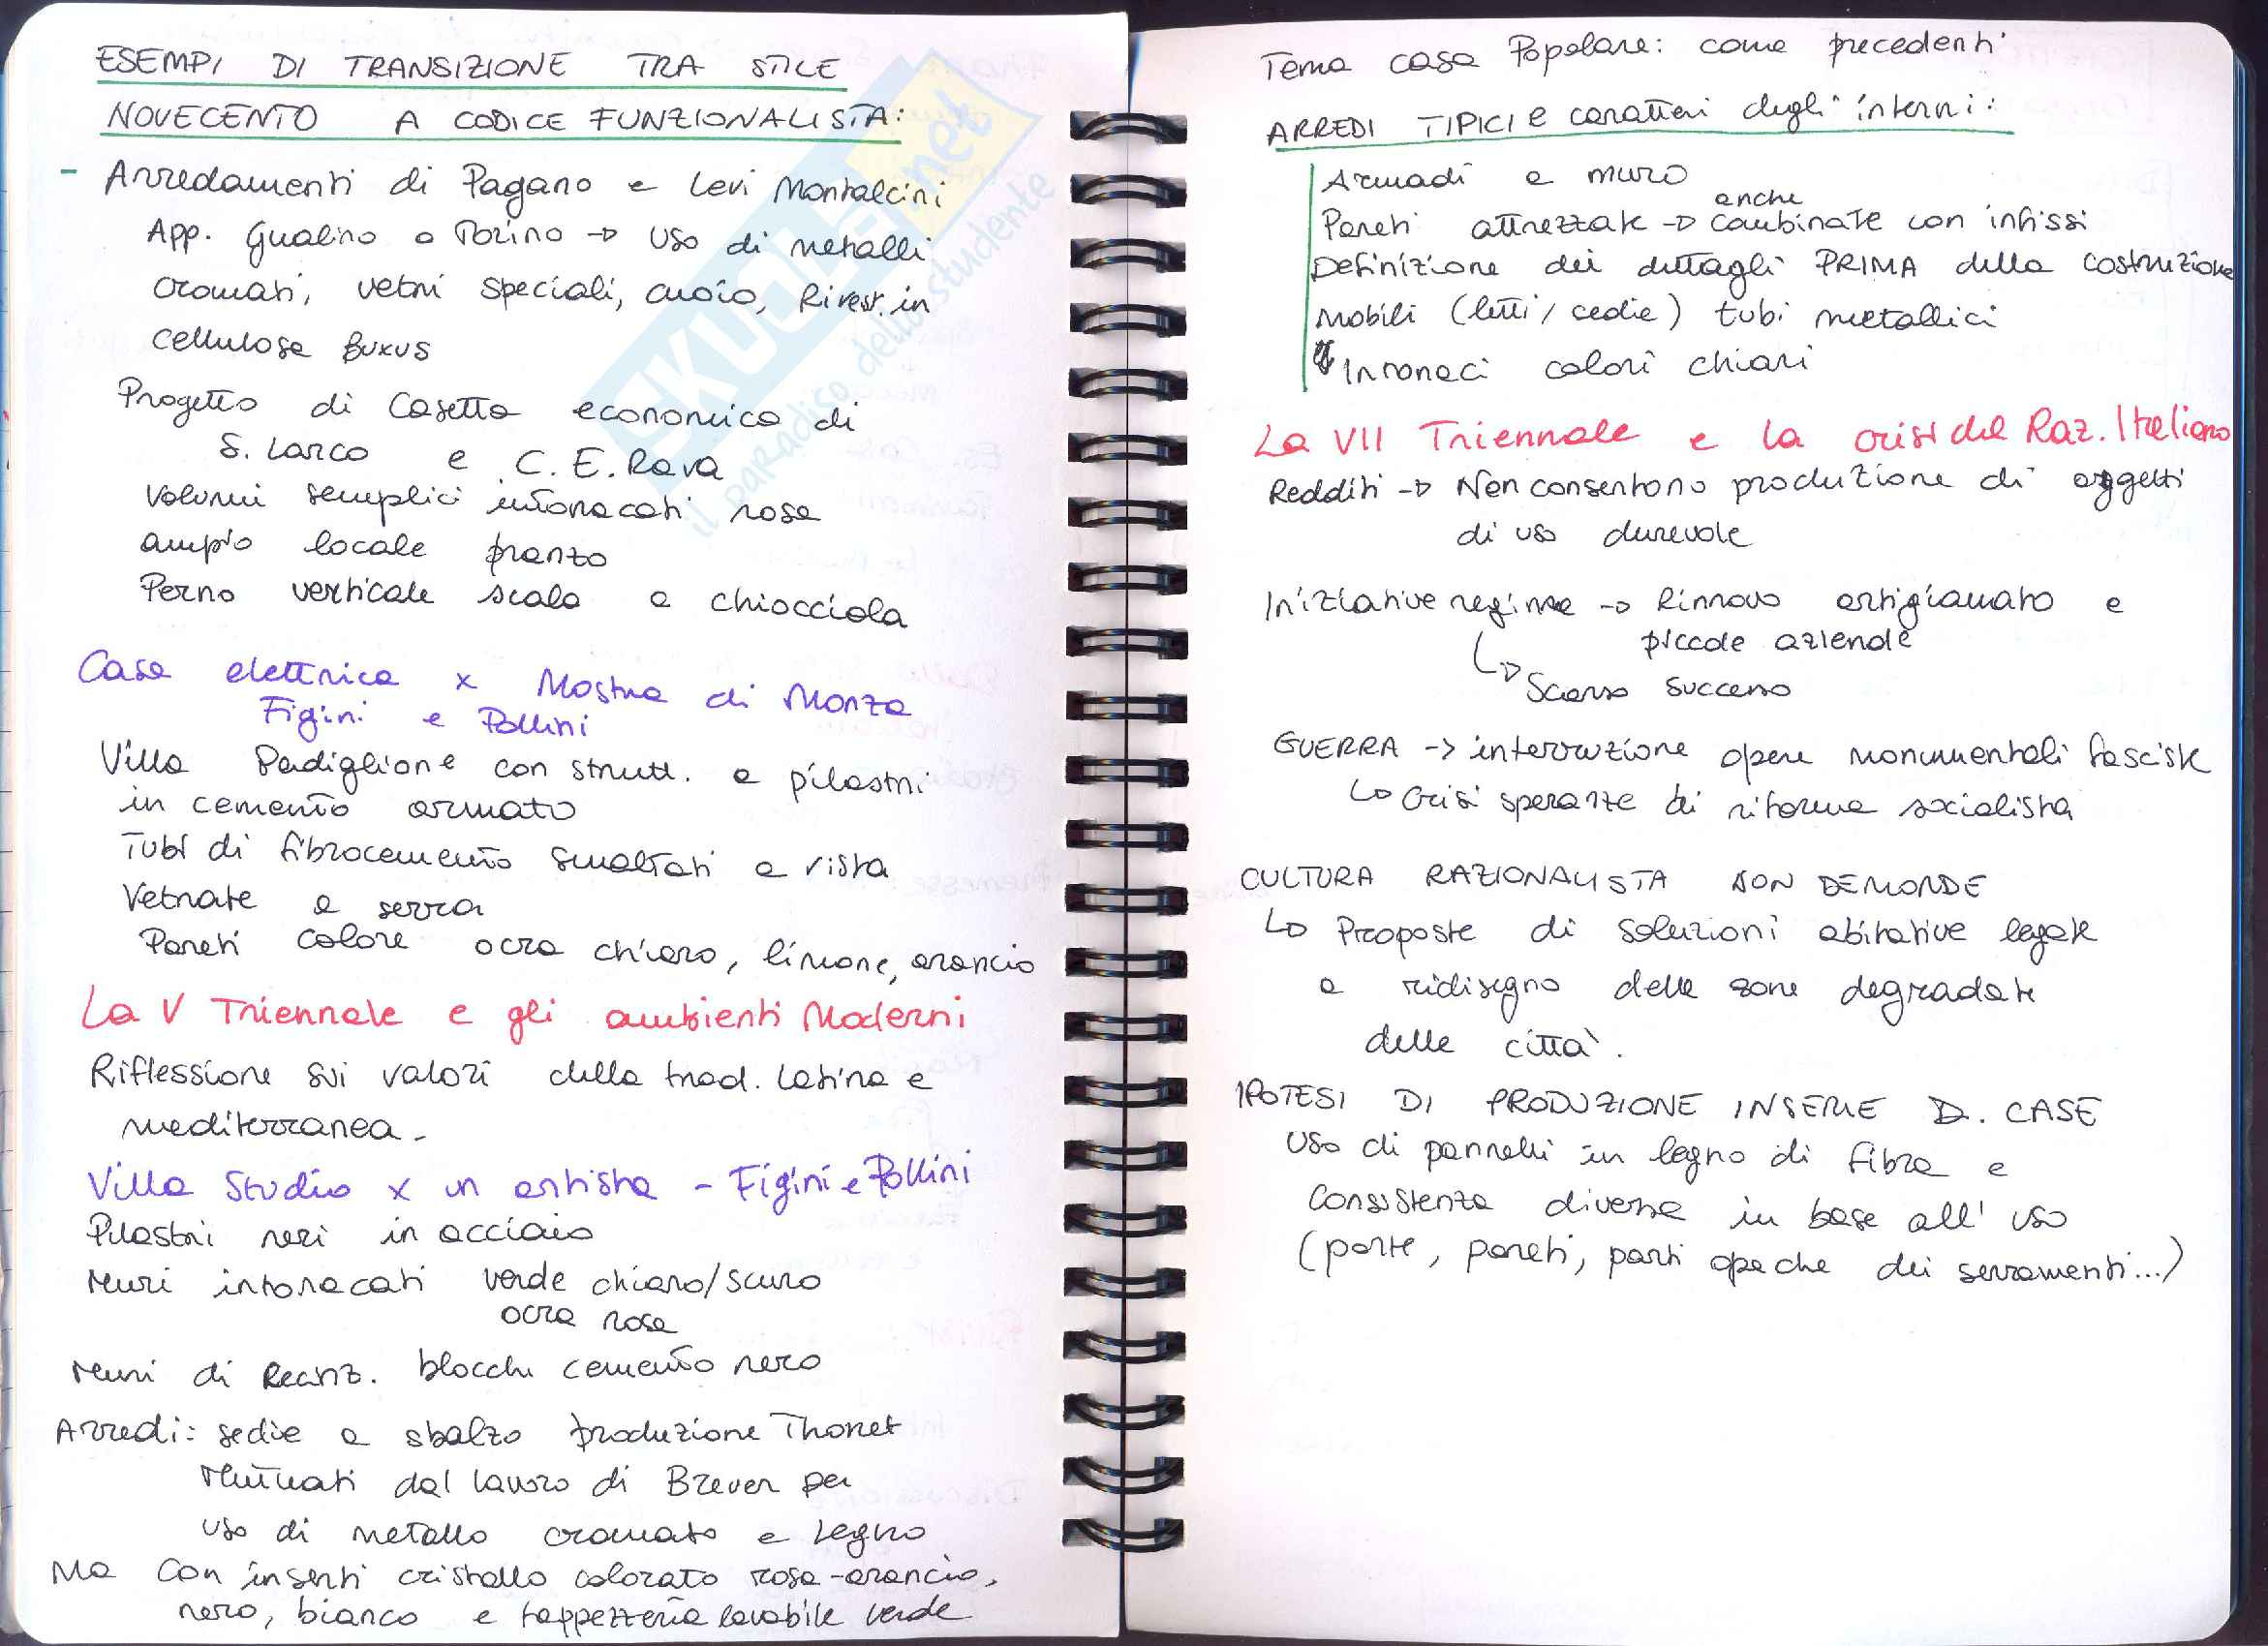 ESEMPI DI TRANSIZIONE TRA STILE
NOVECENTO A CODICE FUNZIONALISTA:
- Arredamenti di Pagano e Levi Montalcini
App. Gualino a Torino → uso di metalli
cromati, vetri speciali, cuoio, Rivest. in
cellulosa Buxus
Progetto di Casetta economica di
S. Larco e C. E. Rava
Volumi semplici intonacati rosa
ampio locale pranzo
Perno verticale scala a chiocciola
Casa elettrica x Mostra di Monza
Figini e Pollini
Villa Padiglione con strutt. a pilastri
in cemento armato
Tubi di fibrocemento smaltati a vista
Vetrate a serra
Pareti colore ocra chiaro, limone, arancio
La V Triennale e gli ambienti Moderni
Riflessione sui valori della trad. Latina e
mediterranea.
Villa Studio x un artista - Figini e Pollini
Pilastri neri in acciaio
Muri intonacati verde chiaro/scuro
ocra rosa
Muri di Recinz. blocchi cemento nero
Arredi: sedie a sbalzo produzione Thonet
Mutuati dal lavoro di Breuer per
uso di metallo cromato e legno
Ma con inserti cristallo colorato rosa-arancio,
nero, bianco e tappezzeria lavabile verde
SKUOLA.net
il paradiso dello studente
Tema casa Popolare: come precedenti
ARREDI TIPICI e caratteri degli interni:
Armadi a muro
anche
Pareti attrezzate → combinate con infissi
Definizione dei dettagli PRIMA della costruzione
Mobili (letti/sedie) tubi metallici
Intonaci colori chiari
La VII Triennale e la crisi del Raz. Italiano
Redditi → Non consentono produzione di oggetti
di uso durevole
Iniziative regime → Rinnovo artigianato e
piccole aziende
↳ Scarso successo
GUERRA → interruzione opere monumentali fasciste
↳ Crisi speranze di riforma socialista
CULTURA RAZIONALISTA NON DEMORDE
↳ Proposte di soluzioni abitative legate
a ridisegno delle zone degradate
delle città.
IPOTESI DI PRODUZIONE IN SERIE D. CASE
Uso di pannelli in legno di fibra e
Consistenza diversa in base all'uso
(porte, pareti, parti opache dei serramenti...)